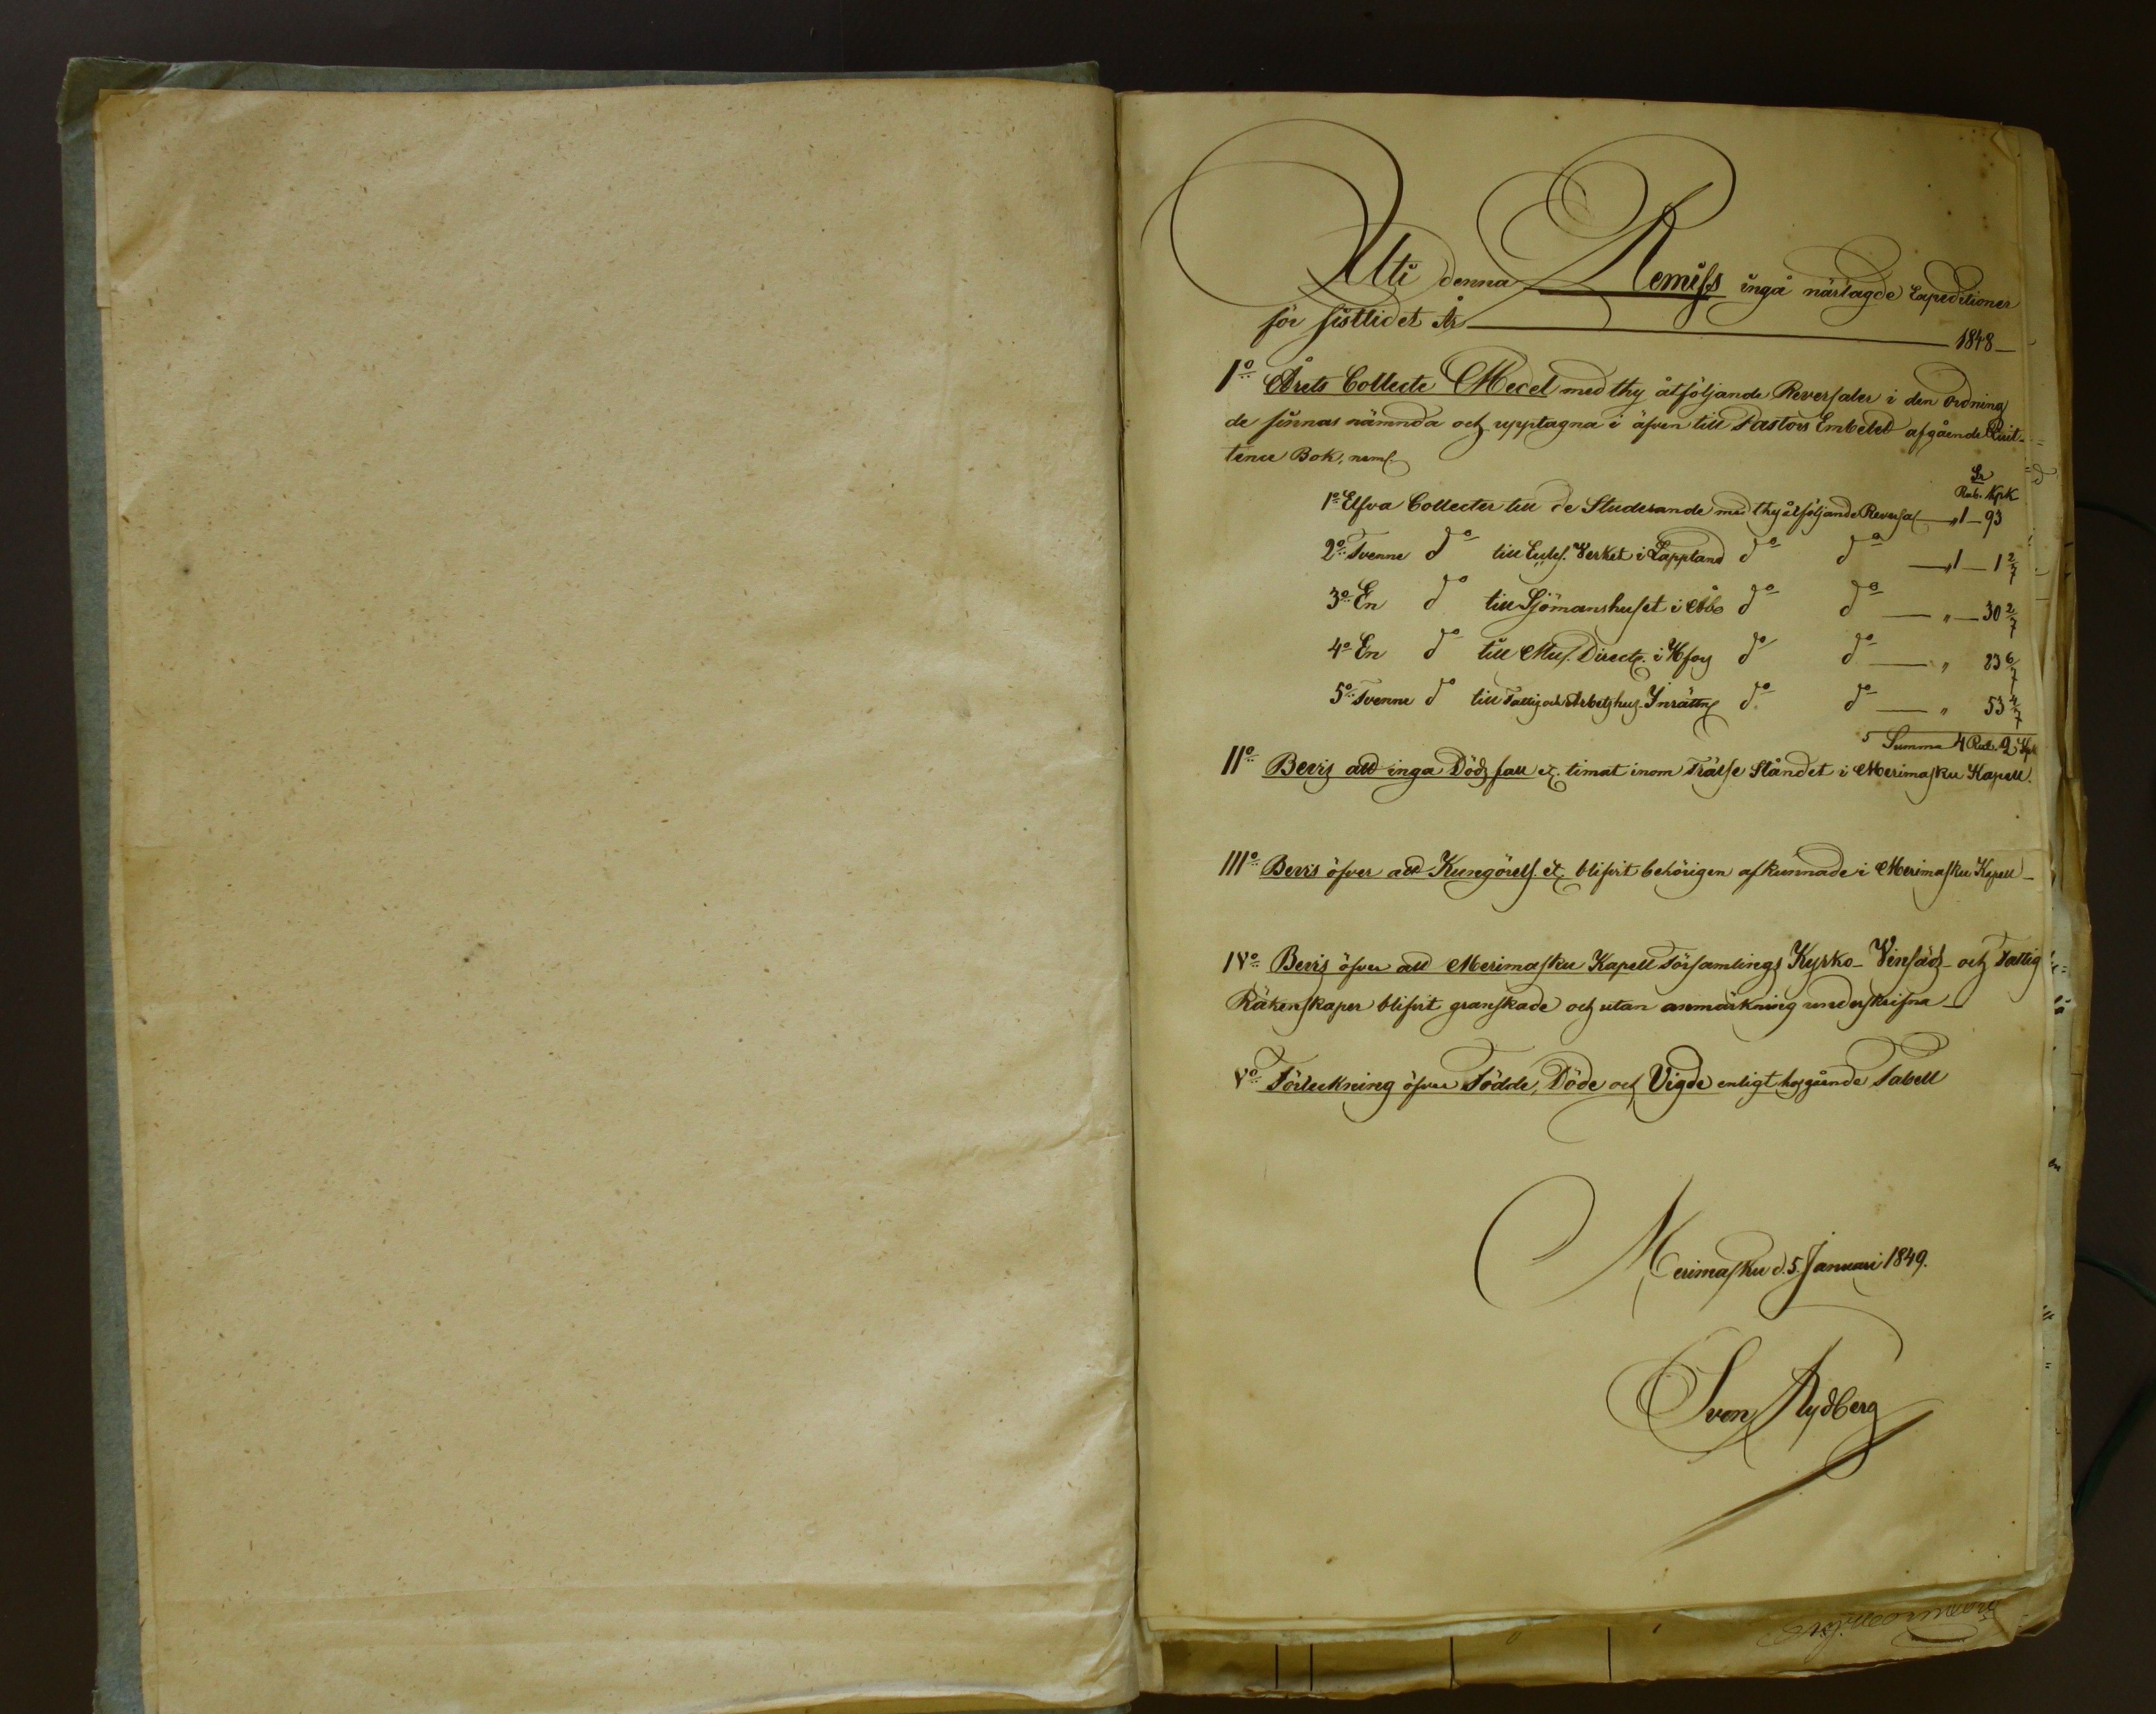 Uti denna Remiss ingå närlagde Expeditioner
för sistlidet År 1848
1o Årets Collecte Medel med thy åtföljande Reversaler i den ordning
de finnas nämnda och upptagna i äfven till Pastors Embetet afgående Quit-
tence Bok, neml.
Sr
Rub. Kpk
1o Elfva Collecter till de Studerande med thy åtföljande Reversal " 1 — 93
2o Tvenne do till Eccles. Verket i Lappland do do " 1 — 1 2/7
3o En do till Sjömanshuset i Åbo do do " — 30 2/7
4o En do till Mus. Direct. i Hfors do do " 23 6/7
5o Tvenne do till Fattig och Arbetshus Inrättng do do " 53 4/7
Summa 4 Rub. 2 Kpk
IIo Bevis att inga Dödsfall etc. timat inom Frälse Ståndet i Merimasku Kapell.
IIIo Bevis öfver att Kungörels. etc. blifvit behörigen afkunnade i Merimasku Kapell
IVo Bevis öfver att Merimasku Kapell Församlings Kyrko- Vinsäds- och Fattig
Räkenskaper blifvit granskade och utan anmärkning underskrifna
Vo Förteckning öfver Födde, Döde och Vigde enligt hosgående Tabell
Merimasku d. 5. Januari 1849.
Sven Rydberg